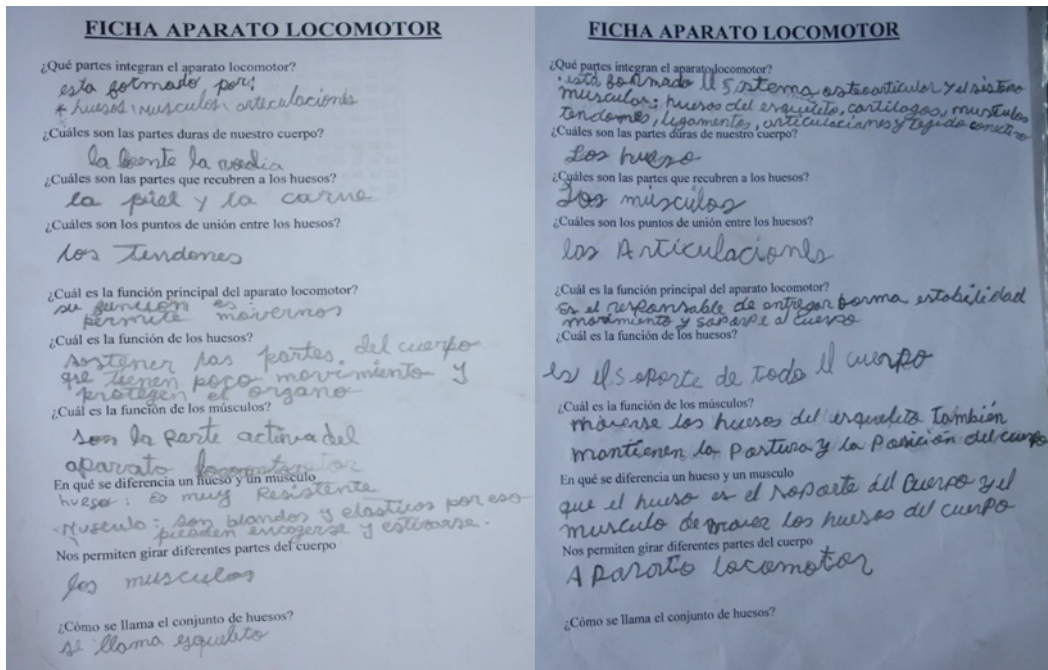 FICHA APARATO LOCOMOTOR
¿Qué partes integran el aparato locomotor?
esta formado por:
* huesos, musculos, articulaciones
¿Cuáles son las partes duras de nuestro cuerpo?
la frente la rodia
¿Cuáles son las partes que recubren a los huesos?
la piel y la carne
¿Cuáles son los puntos de unión entre los huesos?
los Tendones
¿Cuál es la función principal del aparato locomotor?
su función es:
permite movernos
¿Cuál es la función de los huesos?
sostener las partes. del cuerpo
que tienen poco movimiento y
protegen el organo
¿Cuál es la función de los músculos?
son la parte activa del
aparato locomotor
En qué se diferencia un hueso y un musculo
hueso: Es muy Resistente
Musculo: son blandos y elasticos por eso
pueden encogerse y estirarse.
Nos permiten girar diferentes partes del cuerpo
los musculos
¿Cómo se llama el conjunto de huesos?
se llama esqueleto
FICHA APARATO LOCOMOTOR
¿Qué partes integran el aparato locomotor?
está formado el sistema osteoarticular y el sistema
muscular: huesos del esqueleto, cartílagos, musculos
tendones, ligamentos, articulaciones y tegido conectivo
¿Cuáles son las partes duras de nuestro cuerpo?
Los hueso
¿Cuáles son las partes que recubren a los huesos?
Los músculos
¿Cuáles son los puntos de unión entre los huesos?
las Articulaciones
¿Cuál es la función principal del aparato locomotor?
Es el responsable de entregar forma estabilidad
movimiento y soporte al cuerpo
¿Cuál es la función de los huesos?
es el soporte de todo el cuerpo
¿Cuál es la función de los músculos?
moverse los huesos del esqueleto También
mantienen la Postura y la Posición del cuerpo
En qué se diferencia un hueso y un musculo
que el hueso es el soporte del Cuerpo y el
musculo de mover los huesos del cuerpo
Nos permiten girar diferentes partes del cuerpo
Aparato locomotor
¿Cómo se llama el conjunto de huesos?